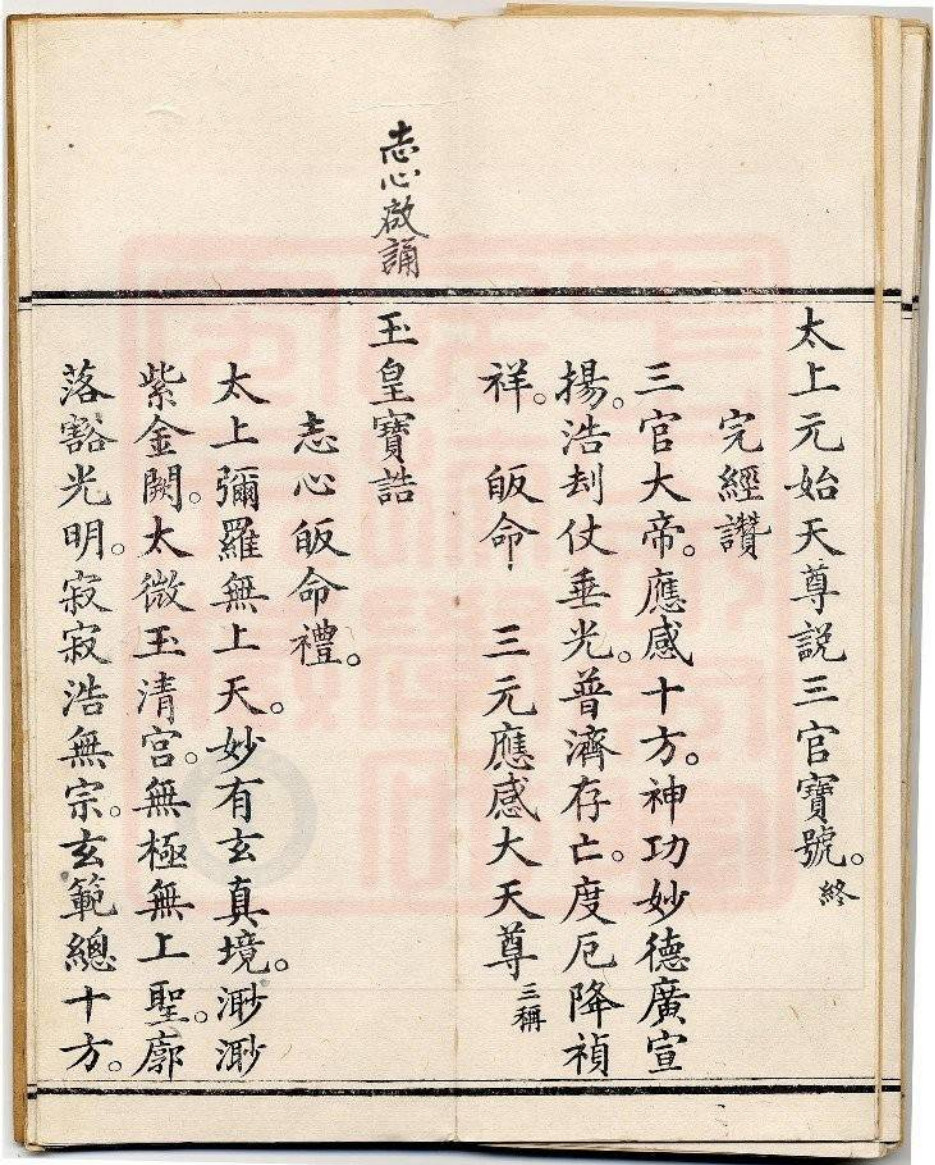 太上元始天尊説三官寶號。終
完經讚
三官大帝。應感十方。神功妙德廣宣
揚。浩刦仗垂光。普濟存亡。度厄降禎
祥。 皈命 三元應感大天尊 三稱
志心啟誦
玉皇寶誥
志心皈命禮。
太上彌羅無上天。妙有玄真境。渺渺
紫金闕。太微玉清宮。無極無上聖。廓
落豁光明。寂寂浩無宗。玄範總十方。